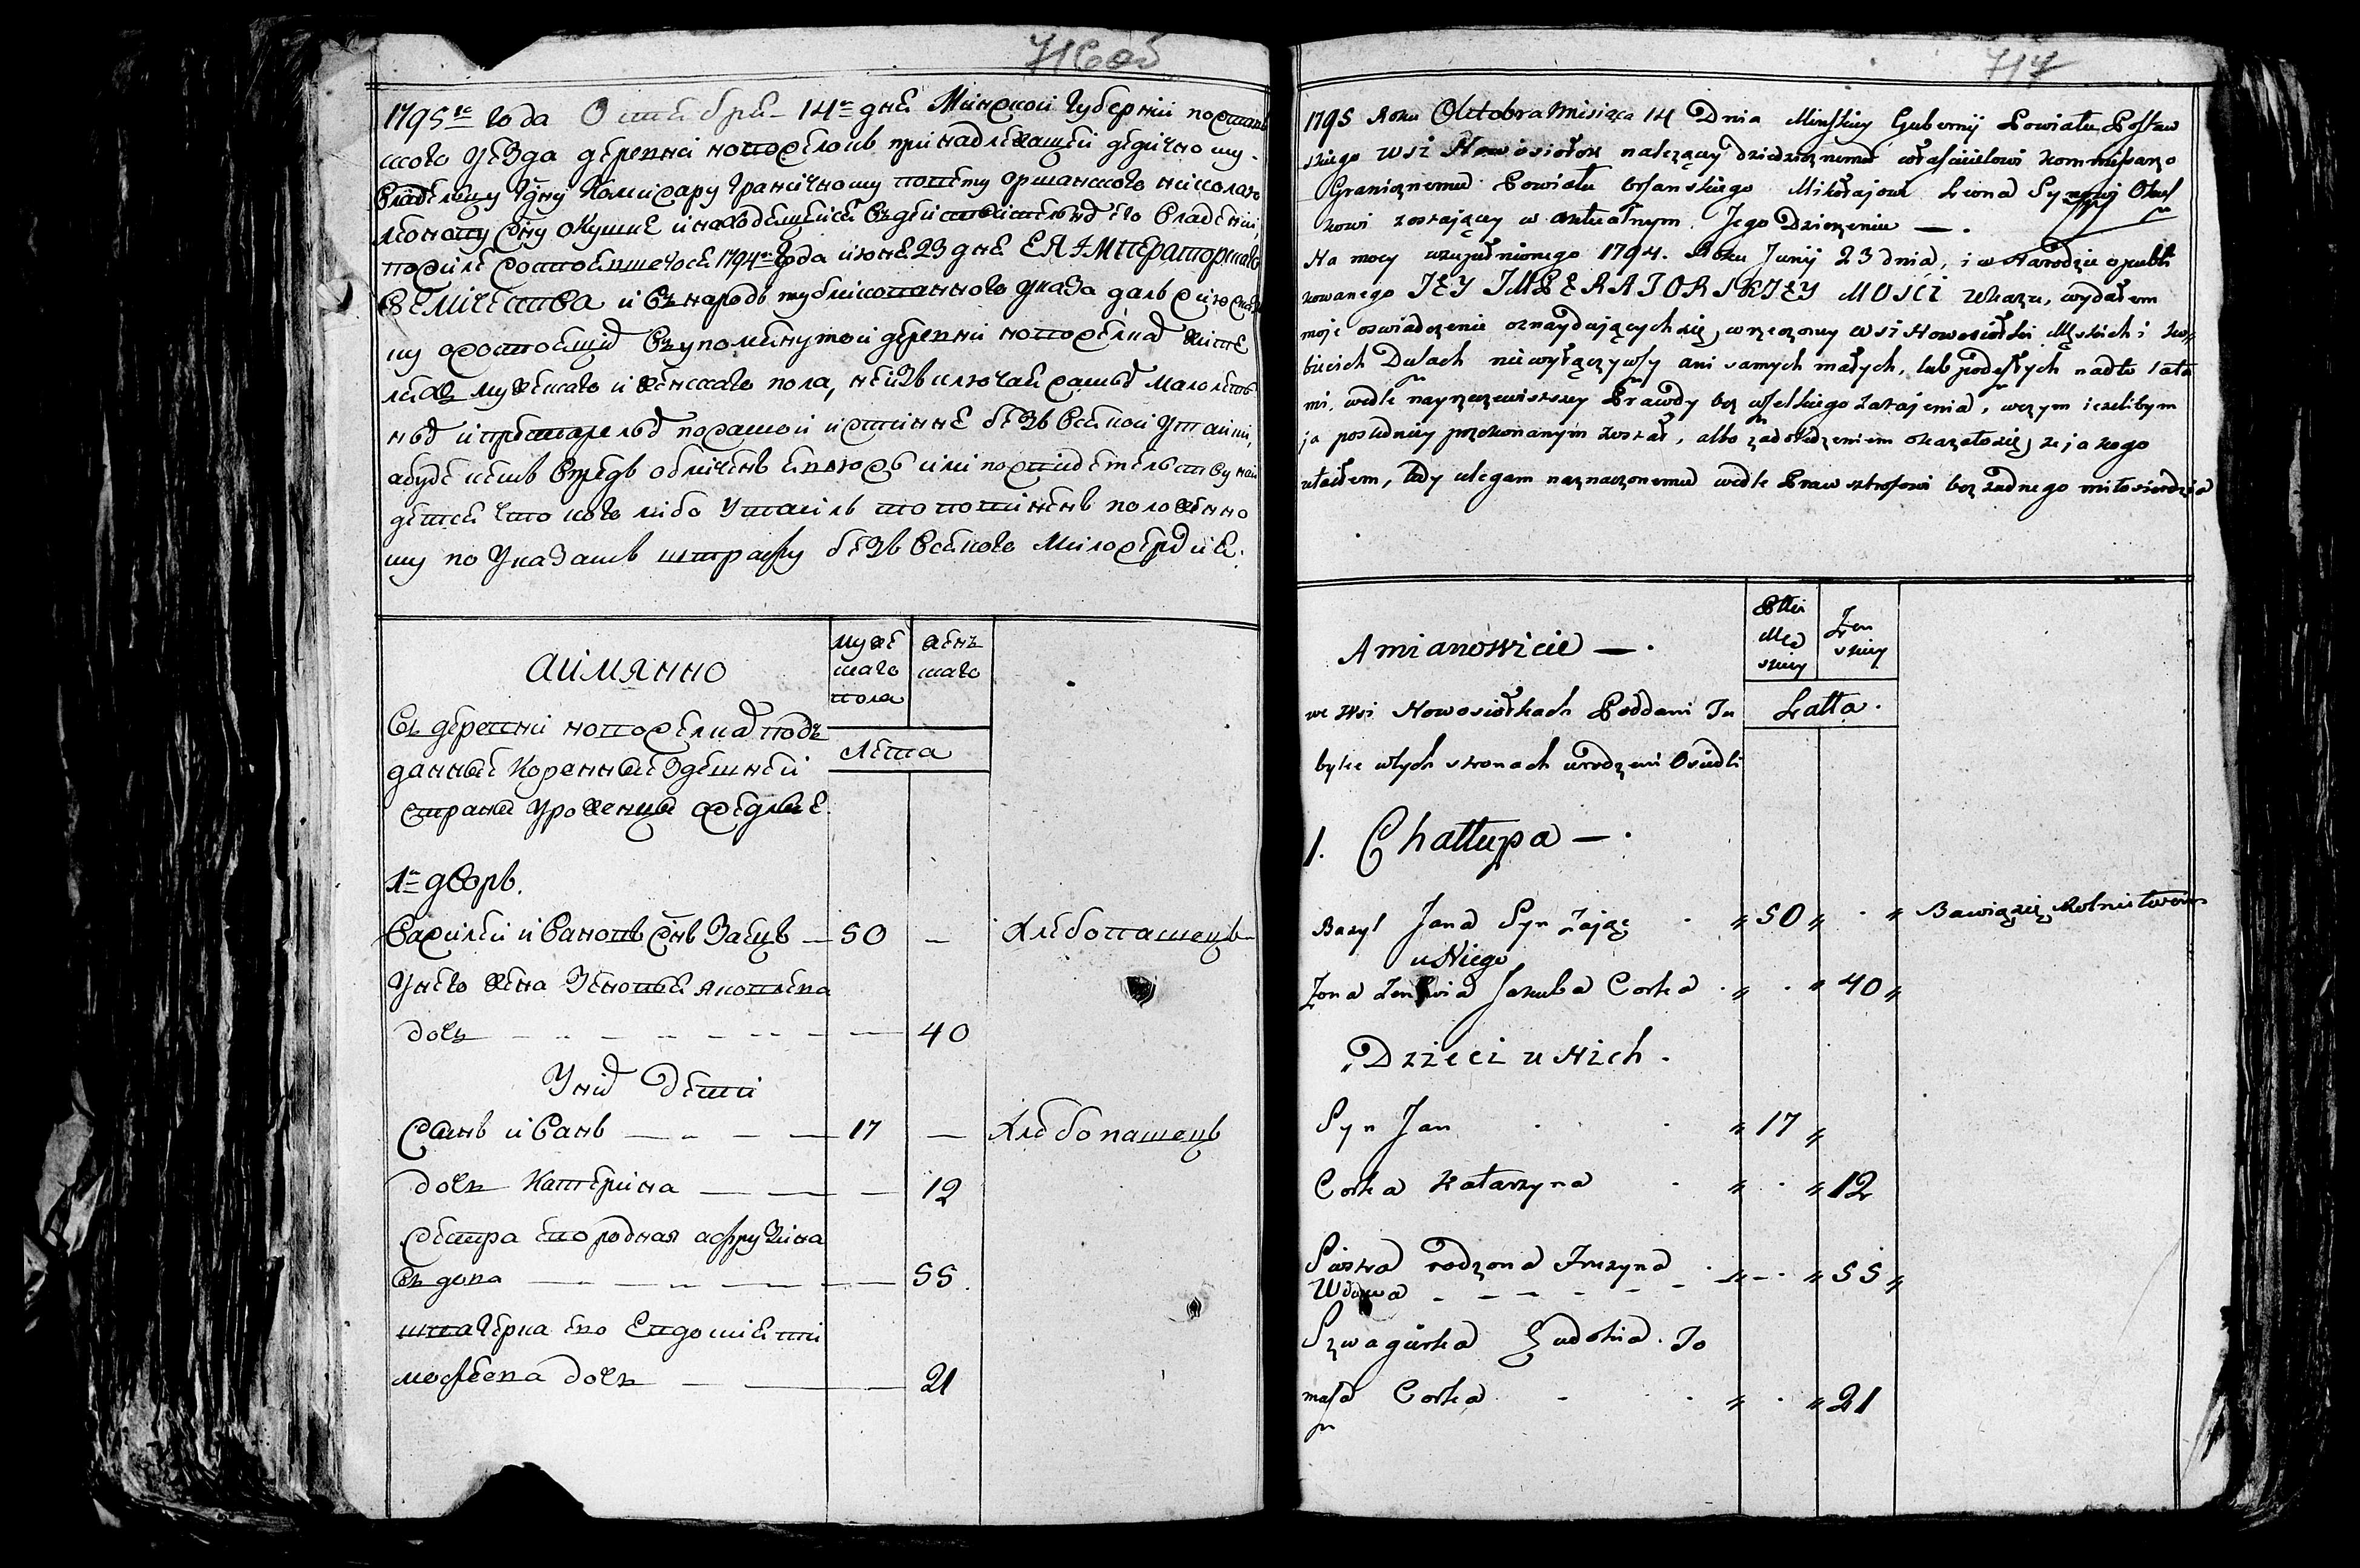 716об
1795го года Октября 14го дня Минской Губернии постав
ского уезда деревни новоселокъ принадлежащей дедично му
владельцу Гдну Комисару Граничному повету оршанского николаю
леонову сну окушке и находящейся въ действительнд его владении,
по силе состоявшегося 1794го года июня 23 дня ЕЯ ИМПЕРАТОРСКАГО
ВЕЛИЧЕСТВА и въ народъ публикованного указа далъ сию сказ
ку о состоящид въ упомянутой деревни новоселкад жите
ляхъ мужеска го и женскаго пола, не изключай самыд малолет
ныд и престарелыд по самой истинне безъ всякой утайки,
а буде я въ вредь обличенъ явлюсь или по свидетельству най
дется что кого либо утаилъ то повиненъ положенно
му по Указамъ штрафу безъ всякого Милосердия.
аимянно
муже
скаго
пола
женъ
скаго
лета
Въ деревни новоселкад подъ
данные Коренные здешней
страны уроженцы оседлые
1й дворъ.
Василей ивановъ снъ Заецъ — 50 — Хлебопашецъ
У него жена Зеновья яковлева
дочь 40
У нид дети
Сынъ иванъ — 17 — Хлебопашецъ
дочь Катерина — 12
Сестра его родная афружина
вдова — 55
швагерка его Евдокия ти
мофеева дочь — 21
717
1795 Roku Oktobra Misiąca 14 Dnia Minskiey Gubernij Powiatu Postaw
skiego wsi Nowosiołok należący dziedzicznemu właścicielowi kommissarzo
Granicznemu Powiatu Orszanskiego Mikołajowi Leona Synowi Okusz
kowi zostający w aktualnym Jego Dzierżeniu — .
Na mocy uzupełnionego 1794. Roku Junij 23 dnia, i w Narodzie opubli
kowanego JEY IMPERATORSKIEY MOSCI Ukazu, wydałem
moje oswiadczenie oznaydujących się w rzeczoney wsi Nowosiołki Męskich i ko
biecich Dusach niewyłączywszy ani samych małych, lub podeszłych nadto lata
mi, wedle nayrzeczewistszey Prawdy bez wszelkiego zatajenia, wczym ieżelibym
ja posledniey przekonanym został, albo zadowodzeniem okazałosię, że ja kogo
utaiłem, tedy ulegam naznaczonemu wedle Praw sztrofowi bez żadnego miłosierdzia
Amianowicie — .
Płci
Mę
skiey
Żen
skiey
Latta.
we Wsi Nowosiołkach Poddani Tu
bylce wtych stronach urodzeni Osiedli
1. Chattupa — .
Bazyl Jana Syn Zając „ 50 „ „ Bawiącsię Rolnictwem
u Niego
Żona Zenowia Jakuba Corka „ „ 40 „
„ Dzieci u Nich .
Syn Jan „ 17 „
Corka Katarzyna „ „ 12
Siostra rodzona Fruzyna
Wdowa „ „ 55 „
Szwagierka Eudokia . To
masza Corka „ „ 21